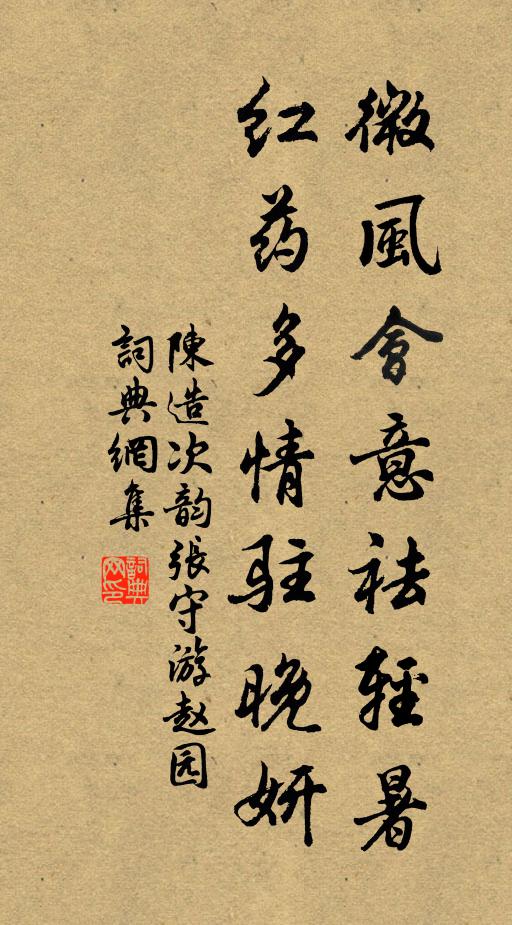 微風會意祛輕暑
红药多情驻晚妍
陳造次韵張守游赵园
詞典網集
詞典网印